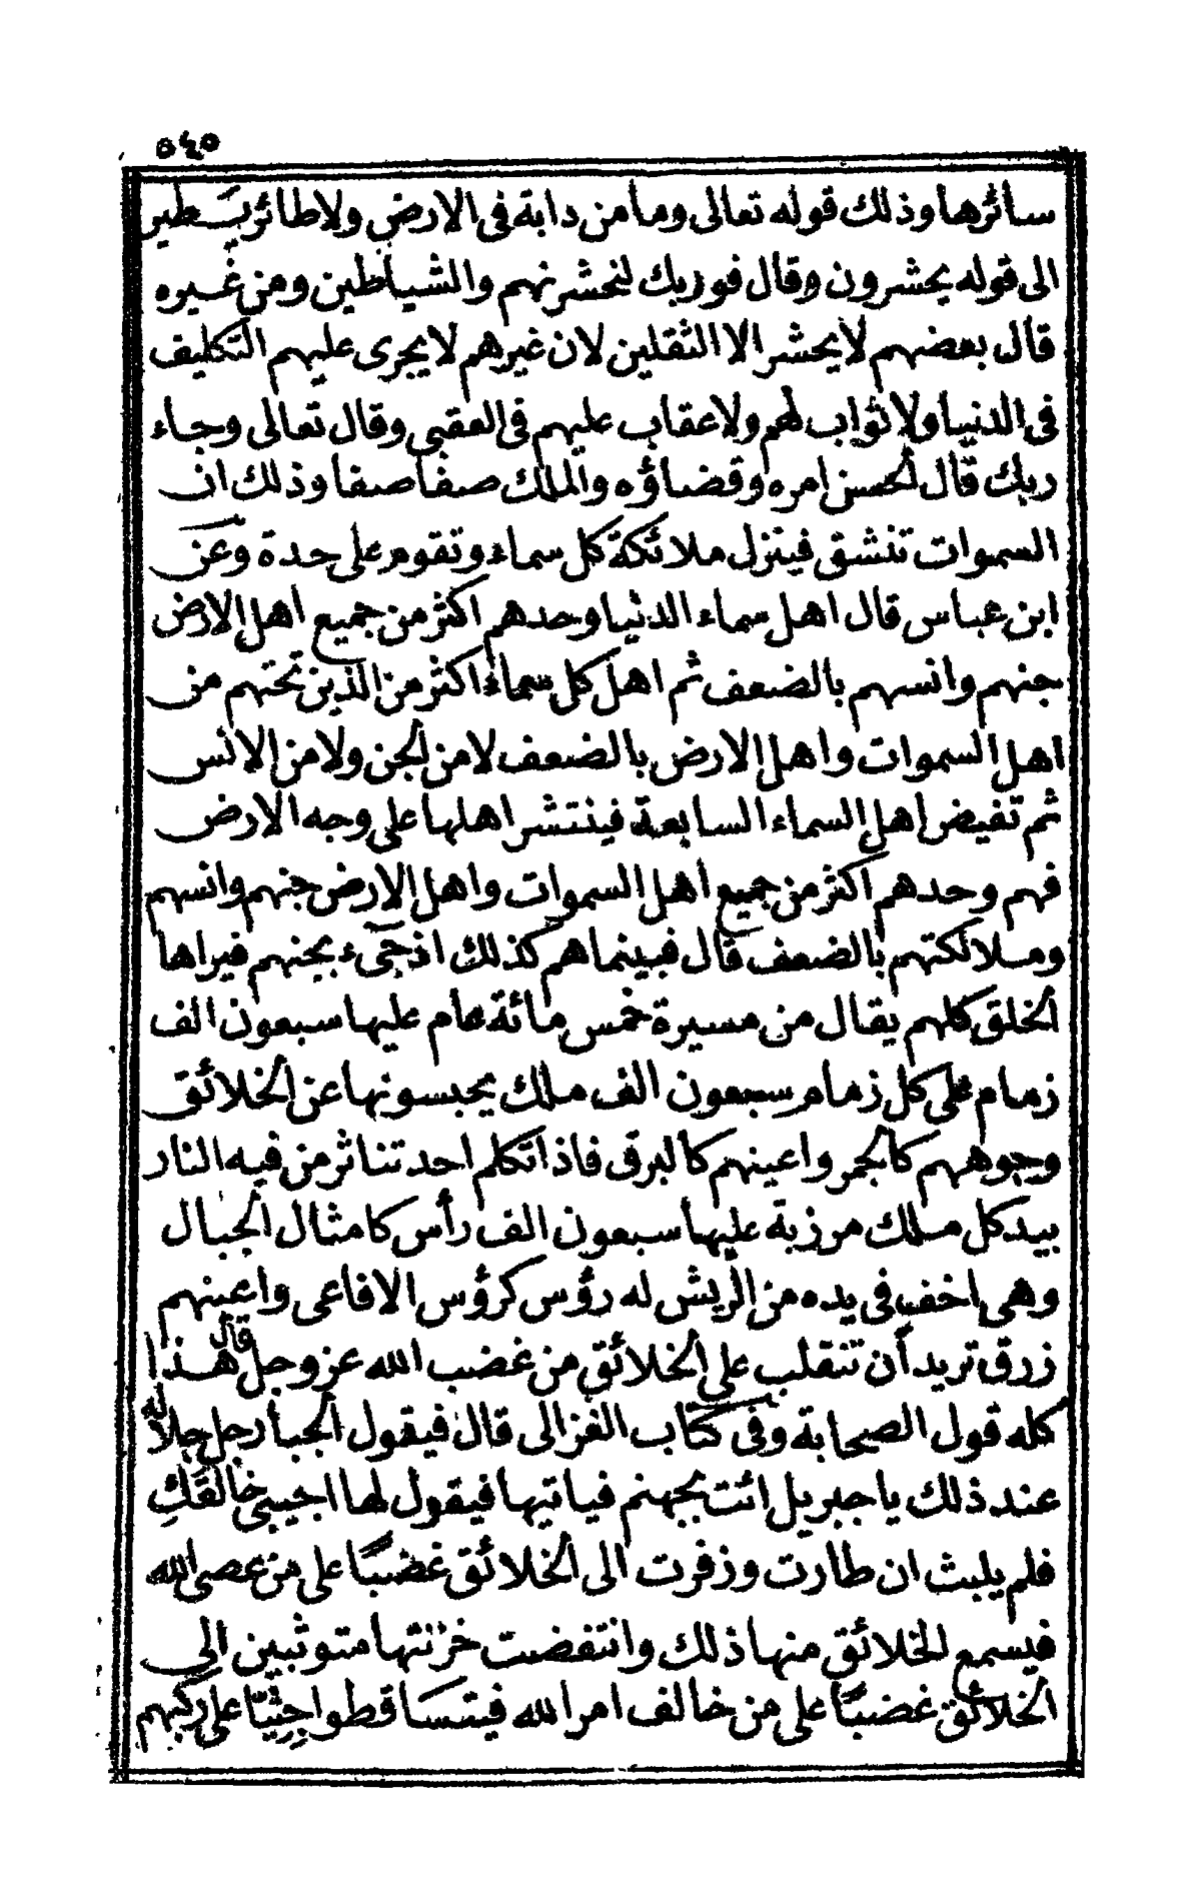 ٥٤٥
سائرها وذلك قوله تعالى وما من دابة فى الارض ولا طائر يطير
الى قوله يحشرون وقال فوربك لنحشرنهم والشياطين ومن غيره
قال بعضهم لا يحشر الا الثقلين لان غيرهم لا يجرى عليهم التكليف
فى الدنيا ولا ثواب لهم ولا عقاب عليهم فى العقبى وقال تعالى وجاء
ربك قال الحسن امره وقضاؤه والملك صفا صفا وذلك ان
السموات تنشق فينزل ملائكة كل سماء وتقوم على حدة وعن
ابن عباس قال اهل سماء الدنيا وحدهم اكثر من جميع اهل الارض
جنهم وانسهم بالضعف ثم اهل كل سماء اكثر من الذين تحتهم من
اهل السموات واهل الارض بالضعف لا من الجن ولا من الانس
ثم تفيض اهل السماء السابعة فينتشر اهلها على وجه الارض
فهم وحدهم اكثر من جميع اهل السموات واهل الارض جنهم وانسهم
وملائكتهم بالضعف قال فبينما هم كذلك اذ جىء بجنهم فيراها
الخلق كلهم يقال من مسيرة خمس مائة عام عليها سبعون الف
زمام على كل زمام سبعون الف ملك يحبسونها عن الخلائق
وجوههم كالجمر واعينهم كالبرق فاذا تكلم احد تناثر من فيه النار
بيد كل ملك مرزبة عليها سبعون الف رأس كامثال الجبال
وهى اخف فى يده من الريش له رؤس كرؤس الافاعى واعينهم
زرق تريد أن تنقلب على الخلائق من غضب الله عز وجل قال هذا
كله قول الصحابة وفى كتاب الغزالى قال فيقول الجبار جل جلاله
عند ذلك يا جبريل ائت بجهنم فياتيها فيقول لها اجيبى خالقكِ
فلم يلبث ان طارت وزفرت الى الخلائق غضبًا على من عصى الله
فيسمع الخلائق منها ذلك وانتفضت خزنتها متوثبين الى
الخلائق غضبًا على من خالف امر الله فيتساقطوا جِثِيّا على ركبهم